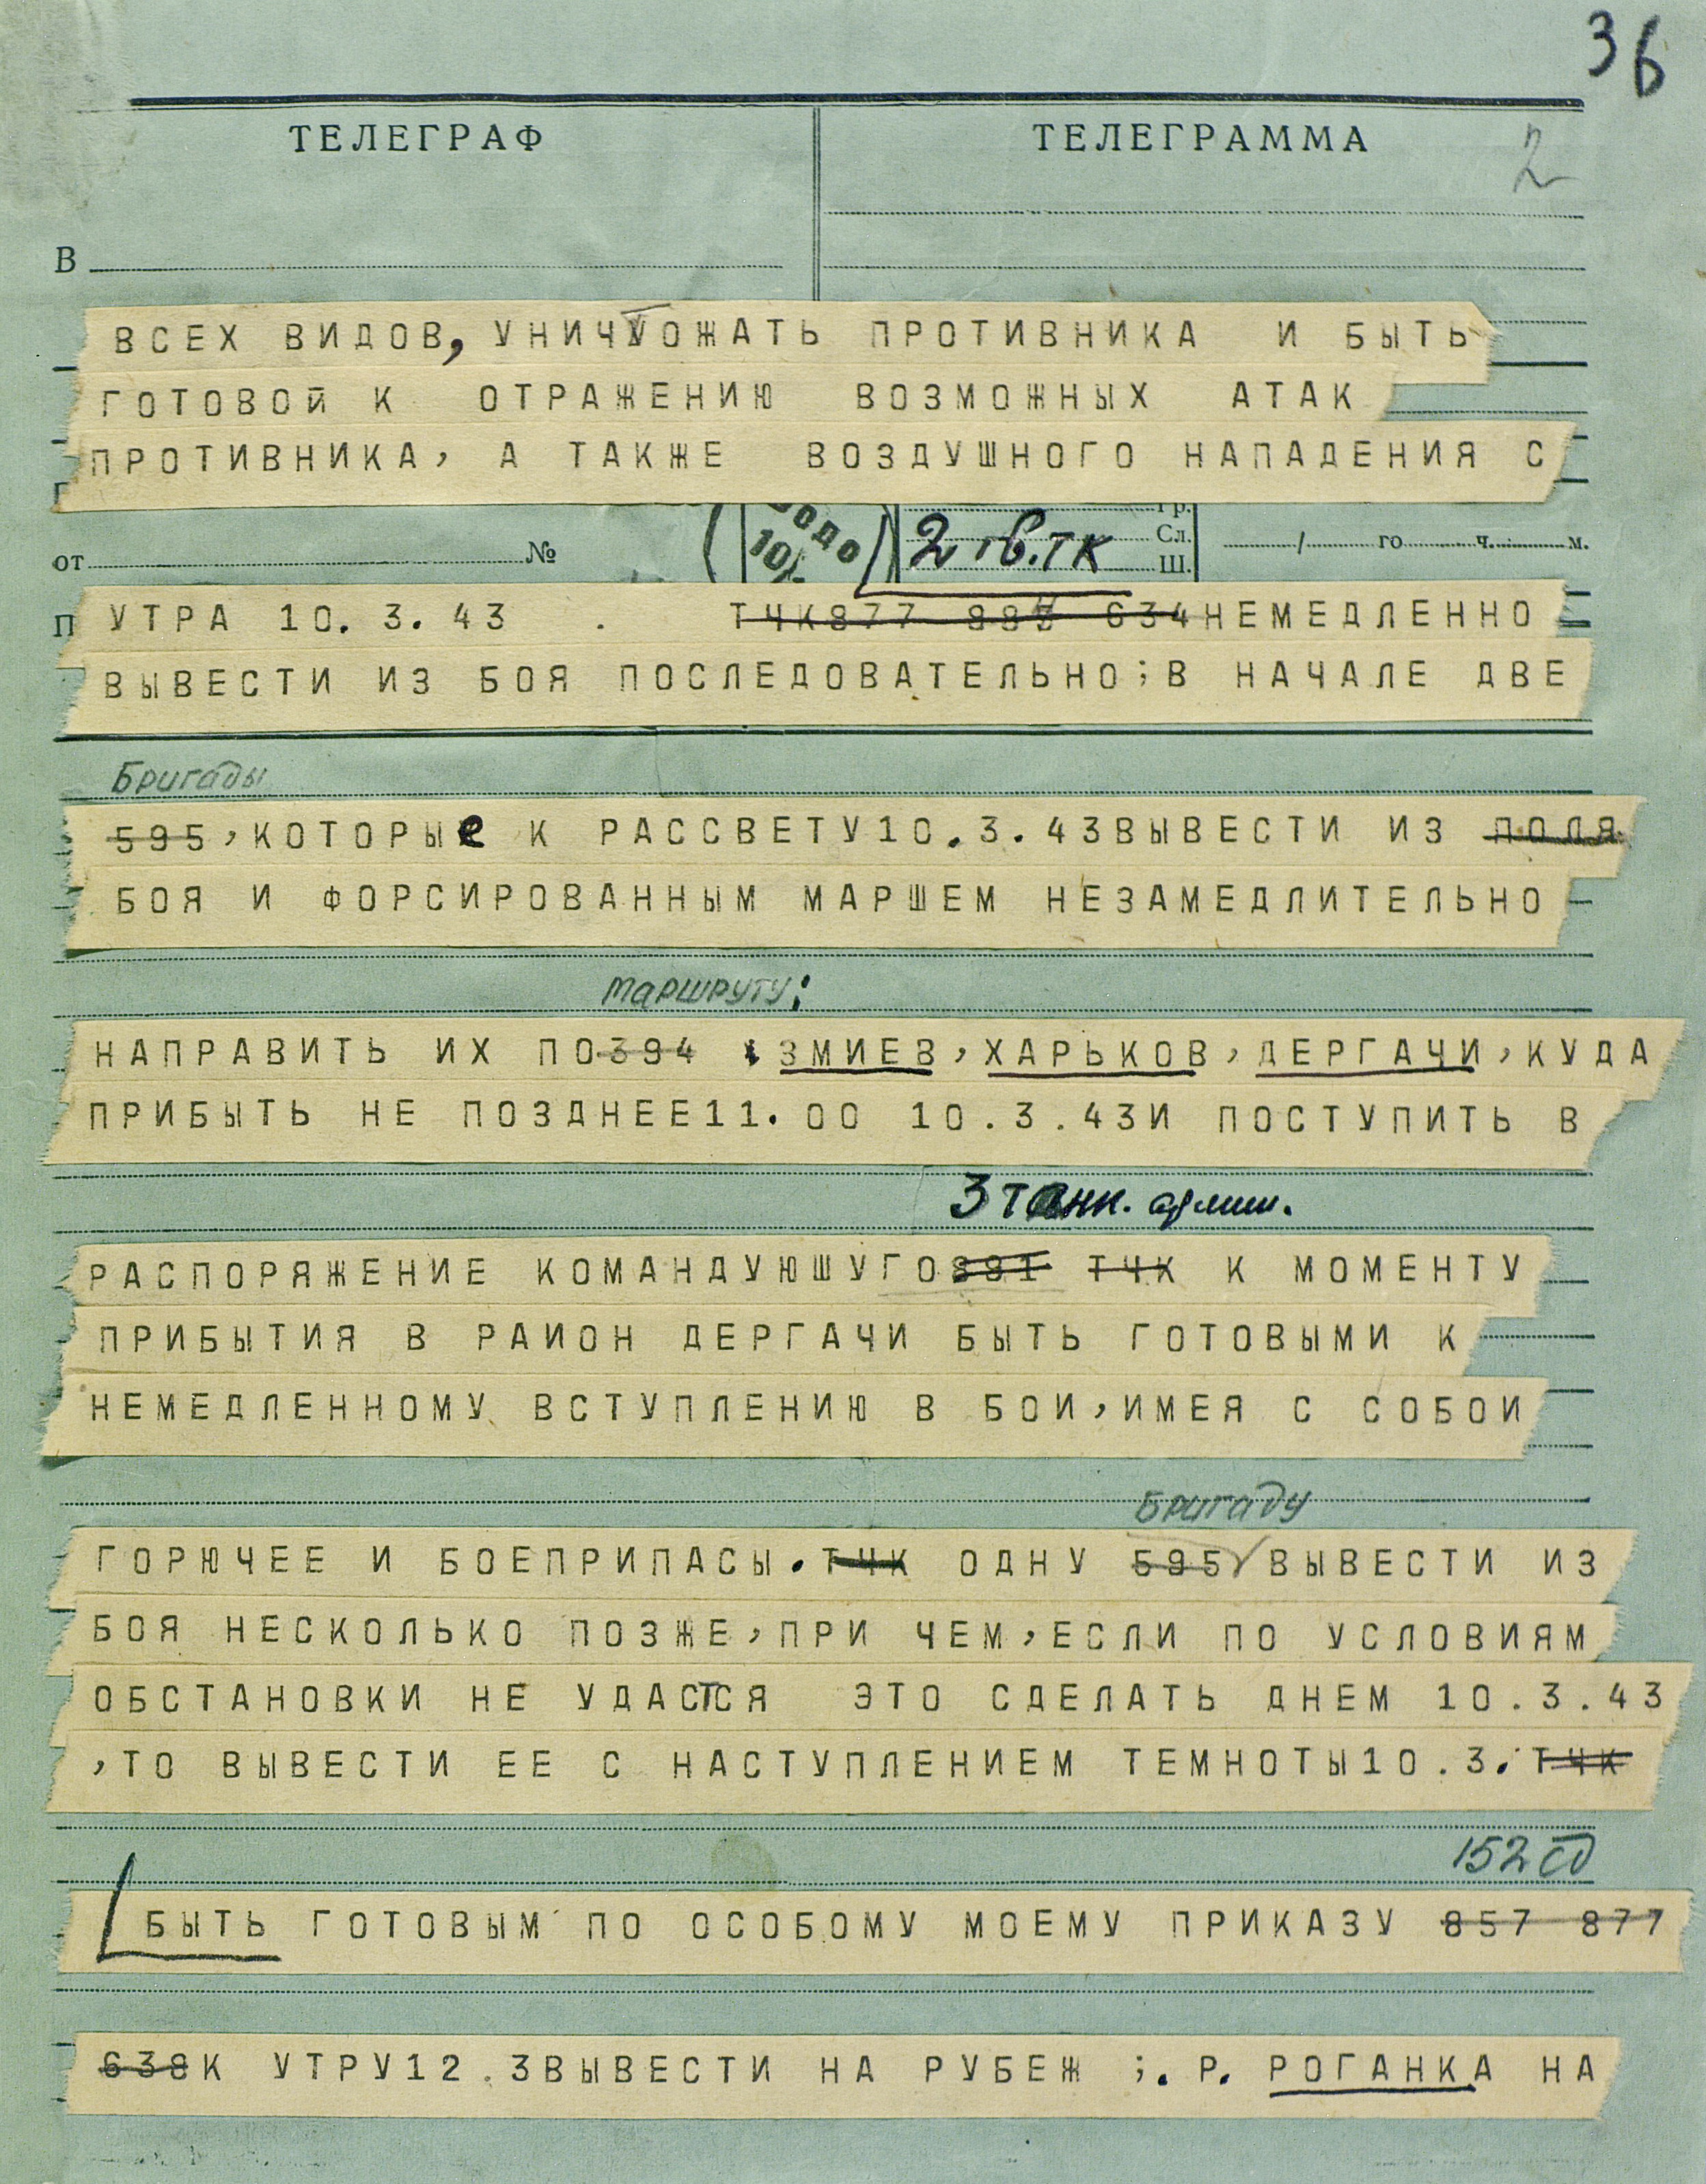 36
ТЕЛЕГРАФ ТЕЛЕГРАММА
2
В
ВСЕХ ВИДОВ, УНИЧТОЖАТЬ ПРОТИВНИКА И БЫТЬ
ГОТОВОЙ К ОТРАЖЕНИЮ ВОЗМОЖНЫХ АТАК
ПРОТИВНИКА, А ТАКЖЕ ВОЗДУШНОГО НАПАДЕНИЯ С
от № 10/ 2 гв.тк Гр. Сл. Ш. / го ч. м.
П УТРА 10. 3. 43 . ТЧК877 634НЕМЕДЛЕННО
ВЫВЕСТИ ИЗ БОЯ ПОСЛЕДОВАТЕЛЬНО;В НАЧАЛЕ ДВЕ
Бригады
595,КОТОРЫе К РАССВЕТУ10.3.43ВЫВЕСТИ ИЗ ПОЛЯ
БОЯ И ФОРСИРОВАННЫМ МАРШЕМ НЕЗАМЕДЛИТЕЛЬНО
маршруту:
НАПРАВИТЬ ИХ ПО394 ЗМИЕВ,ХАРЬКОВ,ДЕРГАЧИ,КУДА
ПРИБЫТЬ НЕ ПОЗДНЕЕ11.00 10.3.43И ПОСТУПИТЬ В
3 танк. армии.
РАСПОРЯЖЕНИЕ КОМАНДУЮШУГО891 ТЧК К МОМЕНТУ
ПРИБЫТИЯ В РАИОН ДЕРГАЧИ БЫТЬ ГОТОВЫМИ К
НЕМЕДЛЕННОМУ ВСТУПЛЕНИЮ В БОИ,ИМЕЯ С СОБОИ
Бригаду
ГОРЮЧЕЕ И БОЕПРИПАСЫ.ТЧК ОДНУ 595 ВЫВЕСТИ ИЗ
БОЯ НЕСКОЛЬКО ПОЗЖЕ,ПРИ ЧЕМ,ЕСЛИ ПО УСЛОВИЯМ
ОБСТАНОВКИ НЕ УДАСТСЯ ЭТО СДЕЛАТЬ ДНЕМ 10.3.43
,ТО ВЫВЕСТИ ЕЕ С НАСТУПЛЕНИЕМ ТЕМНОТЫ10.3.ТЧК
152 сд
БЫТЬ ГОТОВЫМ ПО ОСОБОМУ МОЕМУ ПРИКАЗУ 857 877
638К УТРУ12.3ВЫВЕСТИ НА РУБЕЖ ;. Р. РОГАНКА НА